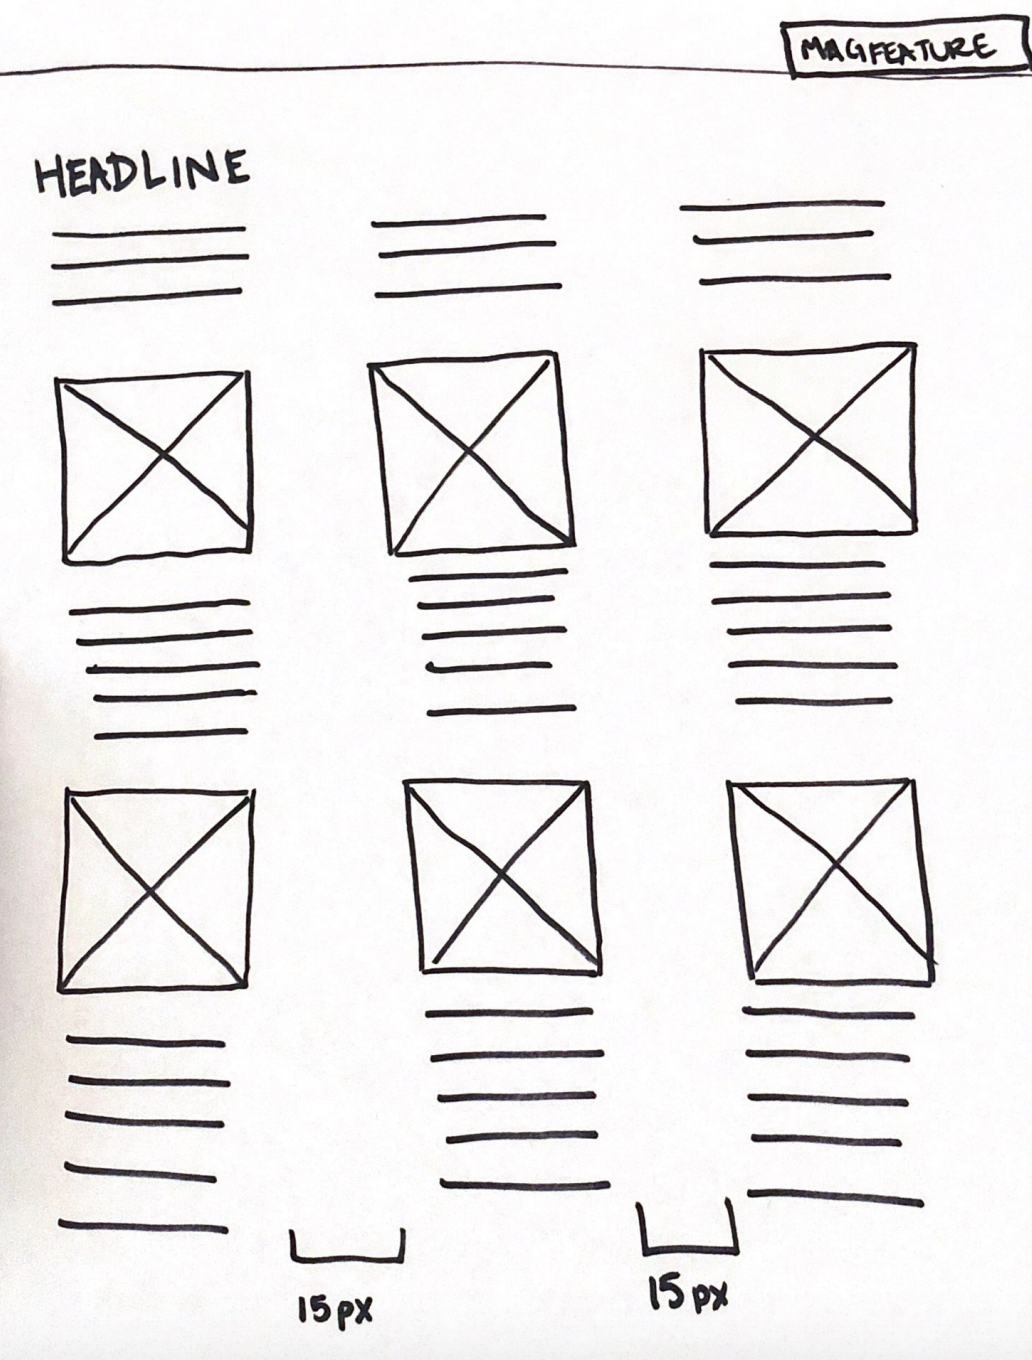 MAGFEATURE
HEADLINE
15px
15px